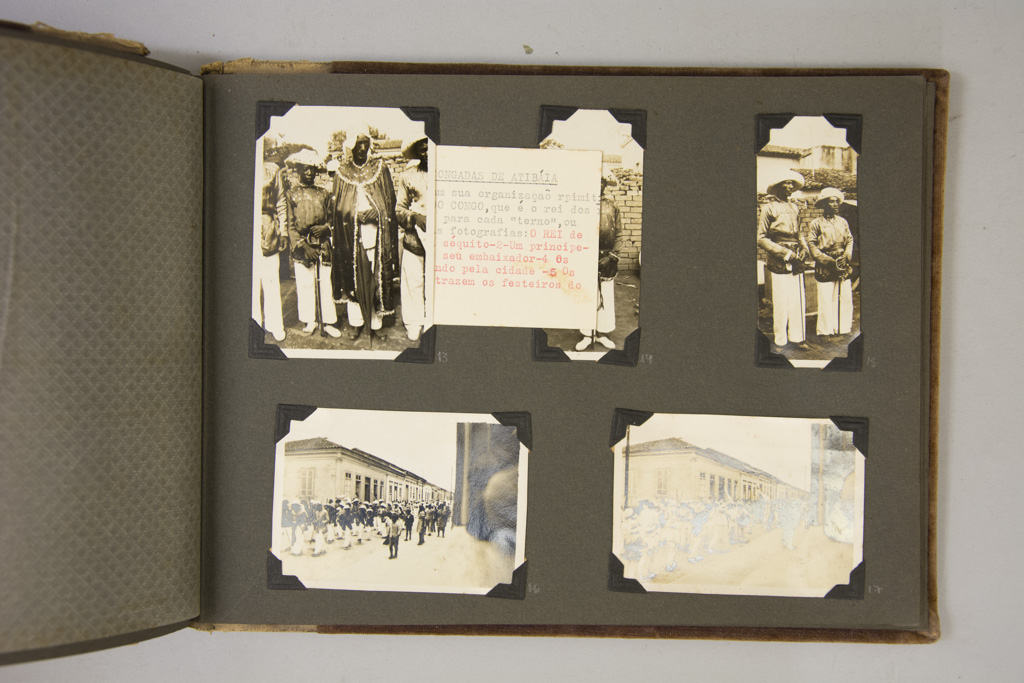 ONGADAS DE ATIBÁIA
sua organização rpimit
O CONGO,que é o rei dos
para cada "terno",ou
s fotografias:O REI de
séquito-2-Um principe-
seu embaixador-4 Os
ndo pela cidade -5 Os
trazem os festeiros do
13
14
15
16
17